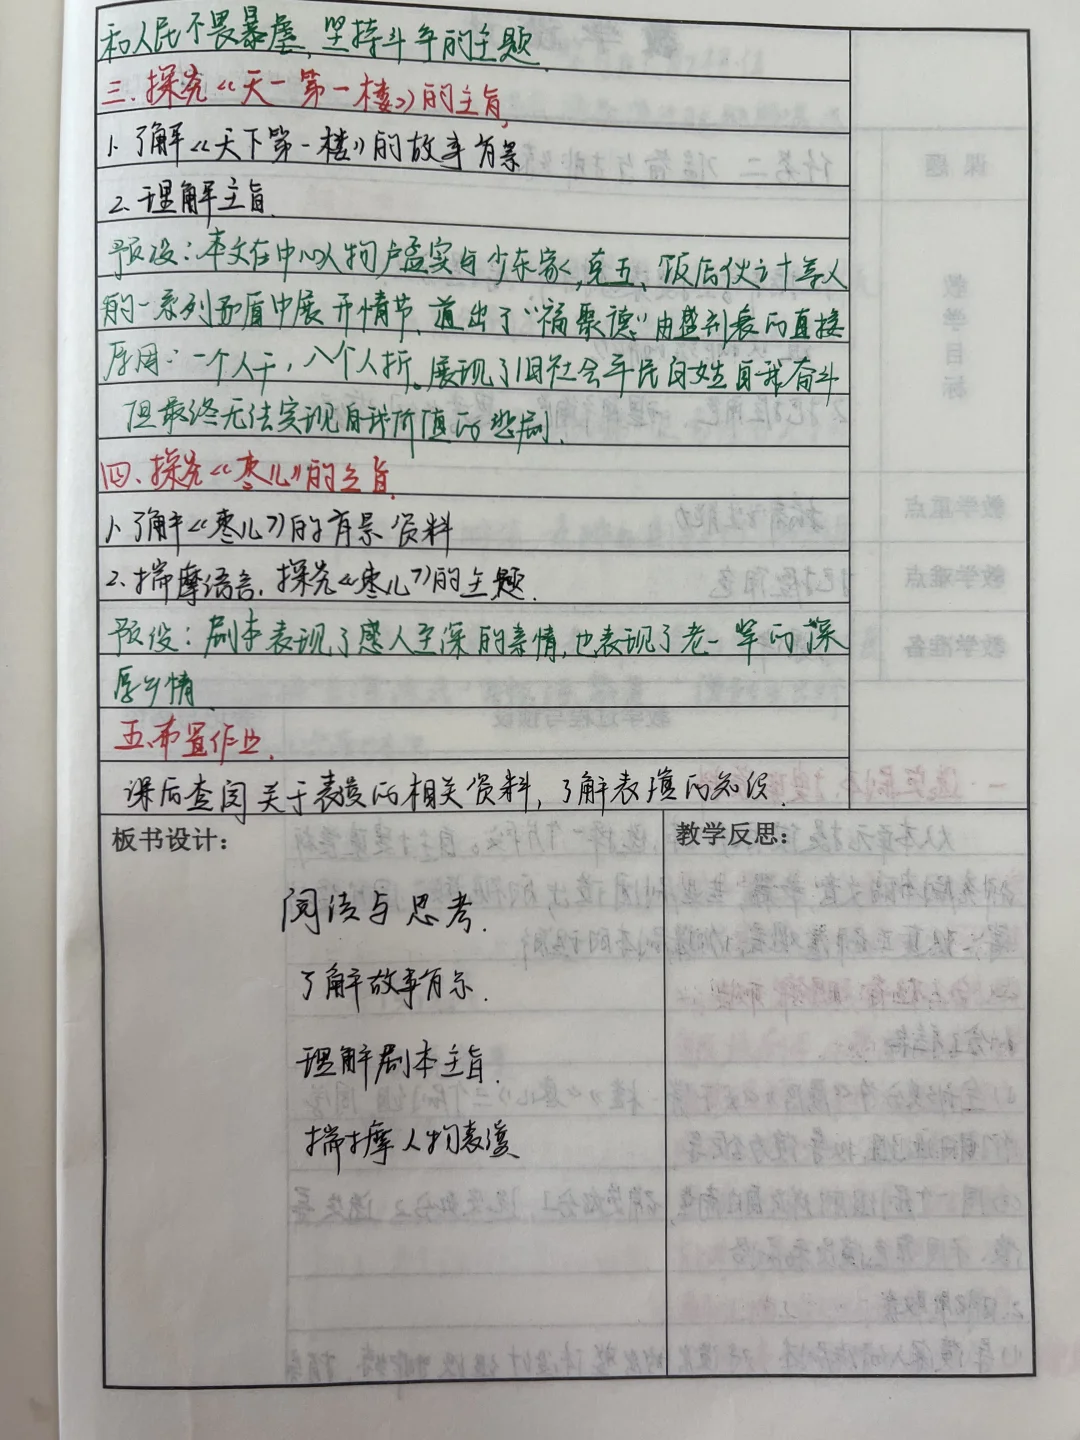 和人民不畏暴虐,坚持斗争的主题.
三.探究《天一第一楼》的主旨,
1.了解《天下第一楼》的故事背景
2.理解主旨.
预设:本文在中心人物卢孟实与少东家,克五、饭店伙计等人
的一系列矛盾中展开情节,道出了"福聚德"由盛到衰的直接
原因:一个人干,八个人拆。展现了旧社会平民百姓自我奋斗
但最终无法实现自我价值的悲剧.
四、探究《枣儿》的主旨.
1.了解《枣儿》的背景资料
2.揣摩语言,探究《枣儿》的主题.
预设:剧本表现了感人至深的亲情,也表现了老一辈的深
厚乡情
五.布置作业.
课后查阅关于表演的相关资料,了解表演的知识.
板书设计:
阅读与思考.
了解故事背景.
理解剧本主旨.
揣摩人物表演
教学反思: